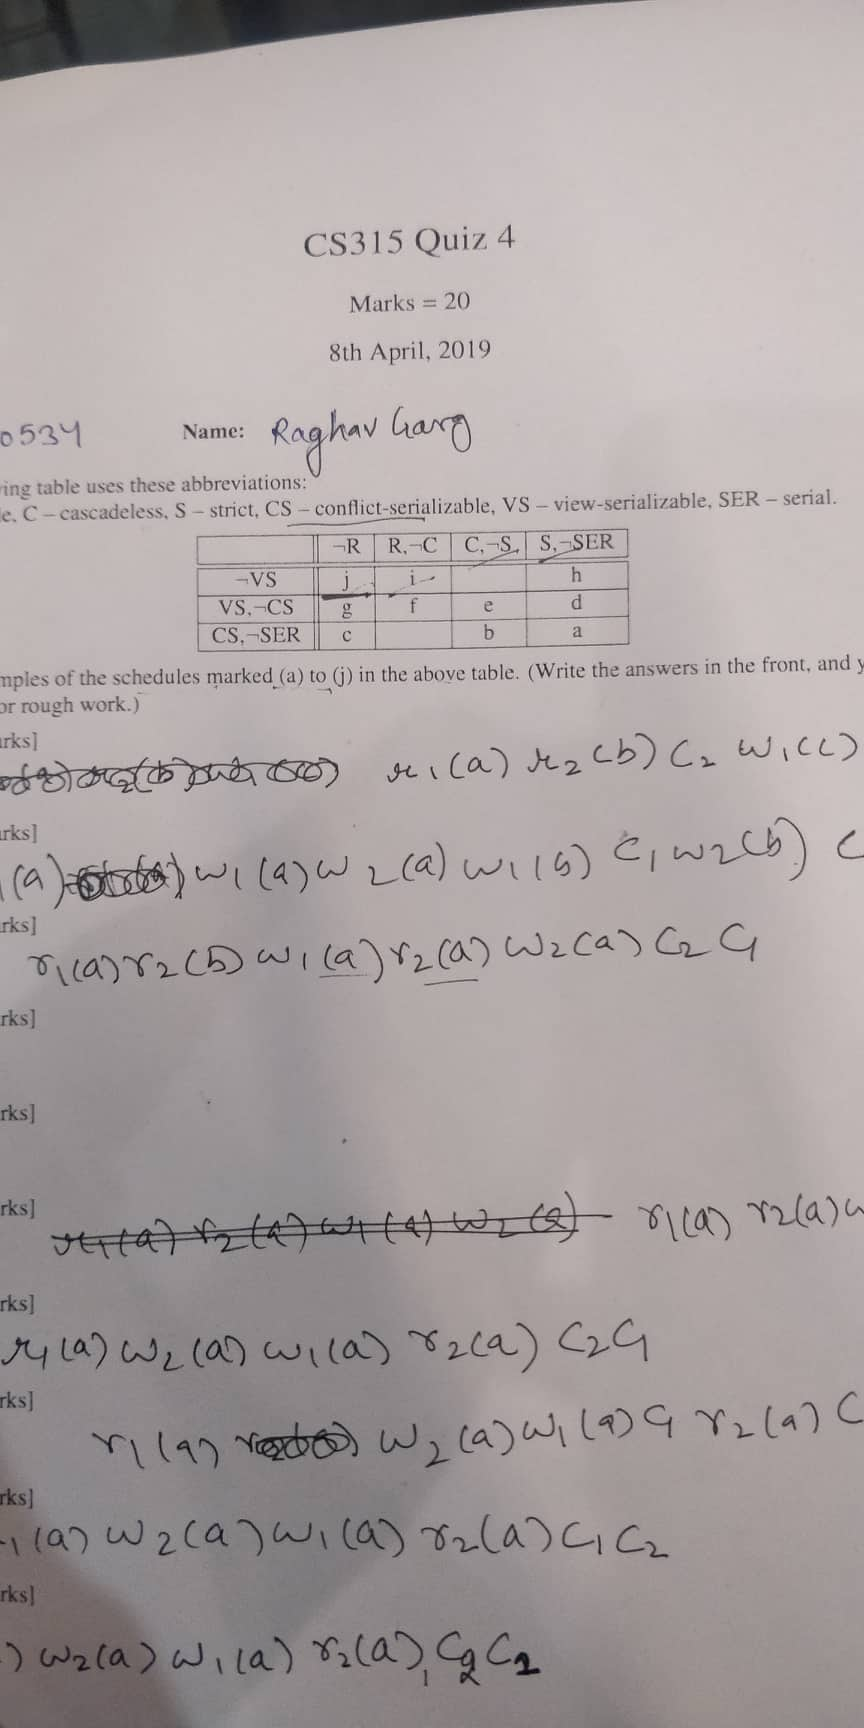 CS315 Quiz 4
Marks = 20
8th April, 2019
0534 Name: Raghav Garg
ing table uses these abbreviations:
e, C – cascadeless, S – strict, CS – conflict-serializable, VS – view-serializable, SER – serial.
¬R R,¬C C,¬S S,¬SER
¬VS j i h
VS,¬CS g f e d
CS,¬SER c b a
mples of the schedules marked (a) to (j) in the above table. (Write the answers in the front, and y
or rough work.)
arks]
r1(a) r2(b) C2 w1(c)
arks]
(a) w1(a) w2(a) w1(b) C1 w2(b) C
rks]
r1(a) r2(b) w1(a) r2(a) w2(a) C2 C1
rks]
rks]
rks]
r1(a) r2(a) w1(a) w2(a) r1(a) r2(a) w
rks]
r1(a) w2(a) w1(a) r2(a) C2 C1
rks]
r1(a) w2(a) w1(a) C1 r2(a) C
rks]
1(a) w2(a) w1(a) r2(a) C1 C2
rks]
) w2(a) w1(a) r2(a)